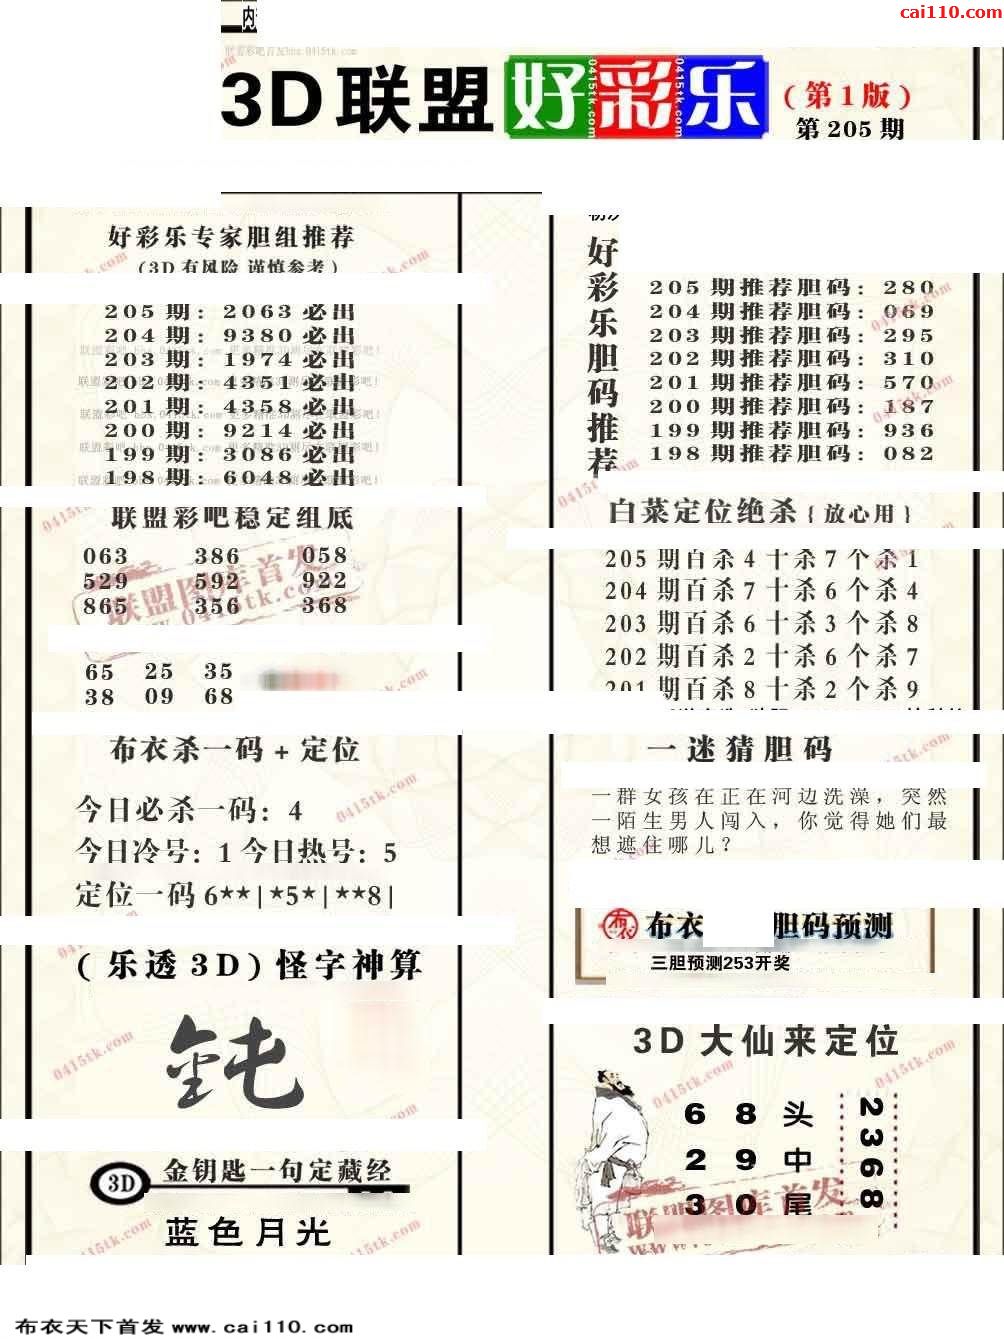 cai110.com
内
3D联盟好彩乐
(第1版)
第205期
好彩乐专家胆组推荐
(3D有风险 谨慎参考)
205期: 2063必出
204期: 9380必出
203期: 1974必出
202期: 4351必出
201期: 4358必出
200期: 9214必出
199期: 3086必出
198期: 6048必出
联盟彩吧稳定组底
063 386 058
529 592 922
865 356 368
65 25 35
38 09 68
布衣杀一码+定位
今日必杀一码: 4
今日冷号: 1 今日热号: 5
定位一码6**|*5*|**8|
(乐透3D)怪字神算
3D
金钥匙一句定藏经
蓝色月光
好彩乐胆码推荐
205期推荐胆码: 280
204期推荐胆码: 069
203期推荐胆码: 295
202期推荐胆码: 310
201期推荐胆码: 570
200期推荐胆码: 187
199期推荐胆码: 936
198期推荐胆码: 082
白菜定位绝杀{放心用}
205期百杀4十杀7个杀1
204期百杀7十杀6个杀4
203期百杀6十杀3个杀8
202期百杀2十杀6个杀7
201期百杀8十杀2个杀9
一迷猜胆码
一群女孩在正在河边洗澡，突然
一陌生男人闯入，你觉得她们最
想遮住哪儿？
布衣 胆码预测
三胆预测253开奖
3D大仙来定位
6 8 头
2 9 中
3 0 尾
2368
联盟图库首发
0415tk.com
布衣天下首发 www.cai110.com